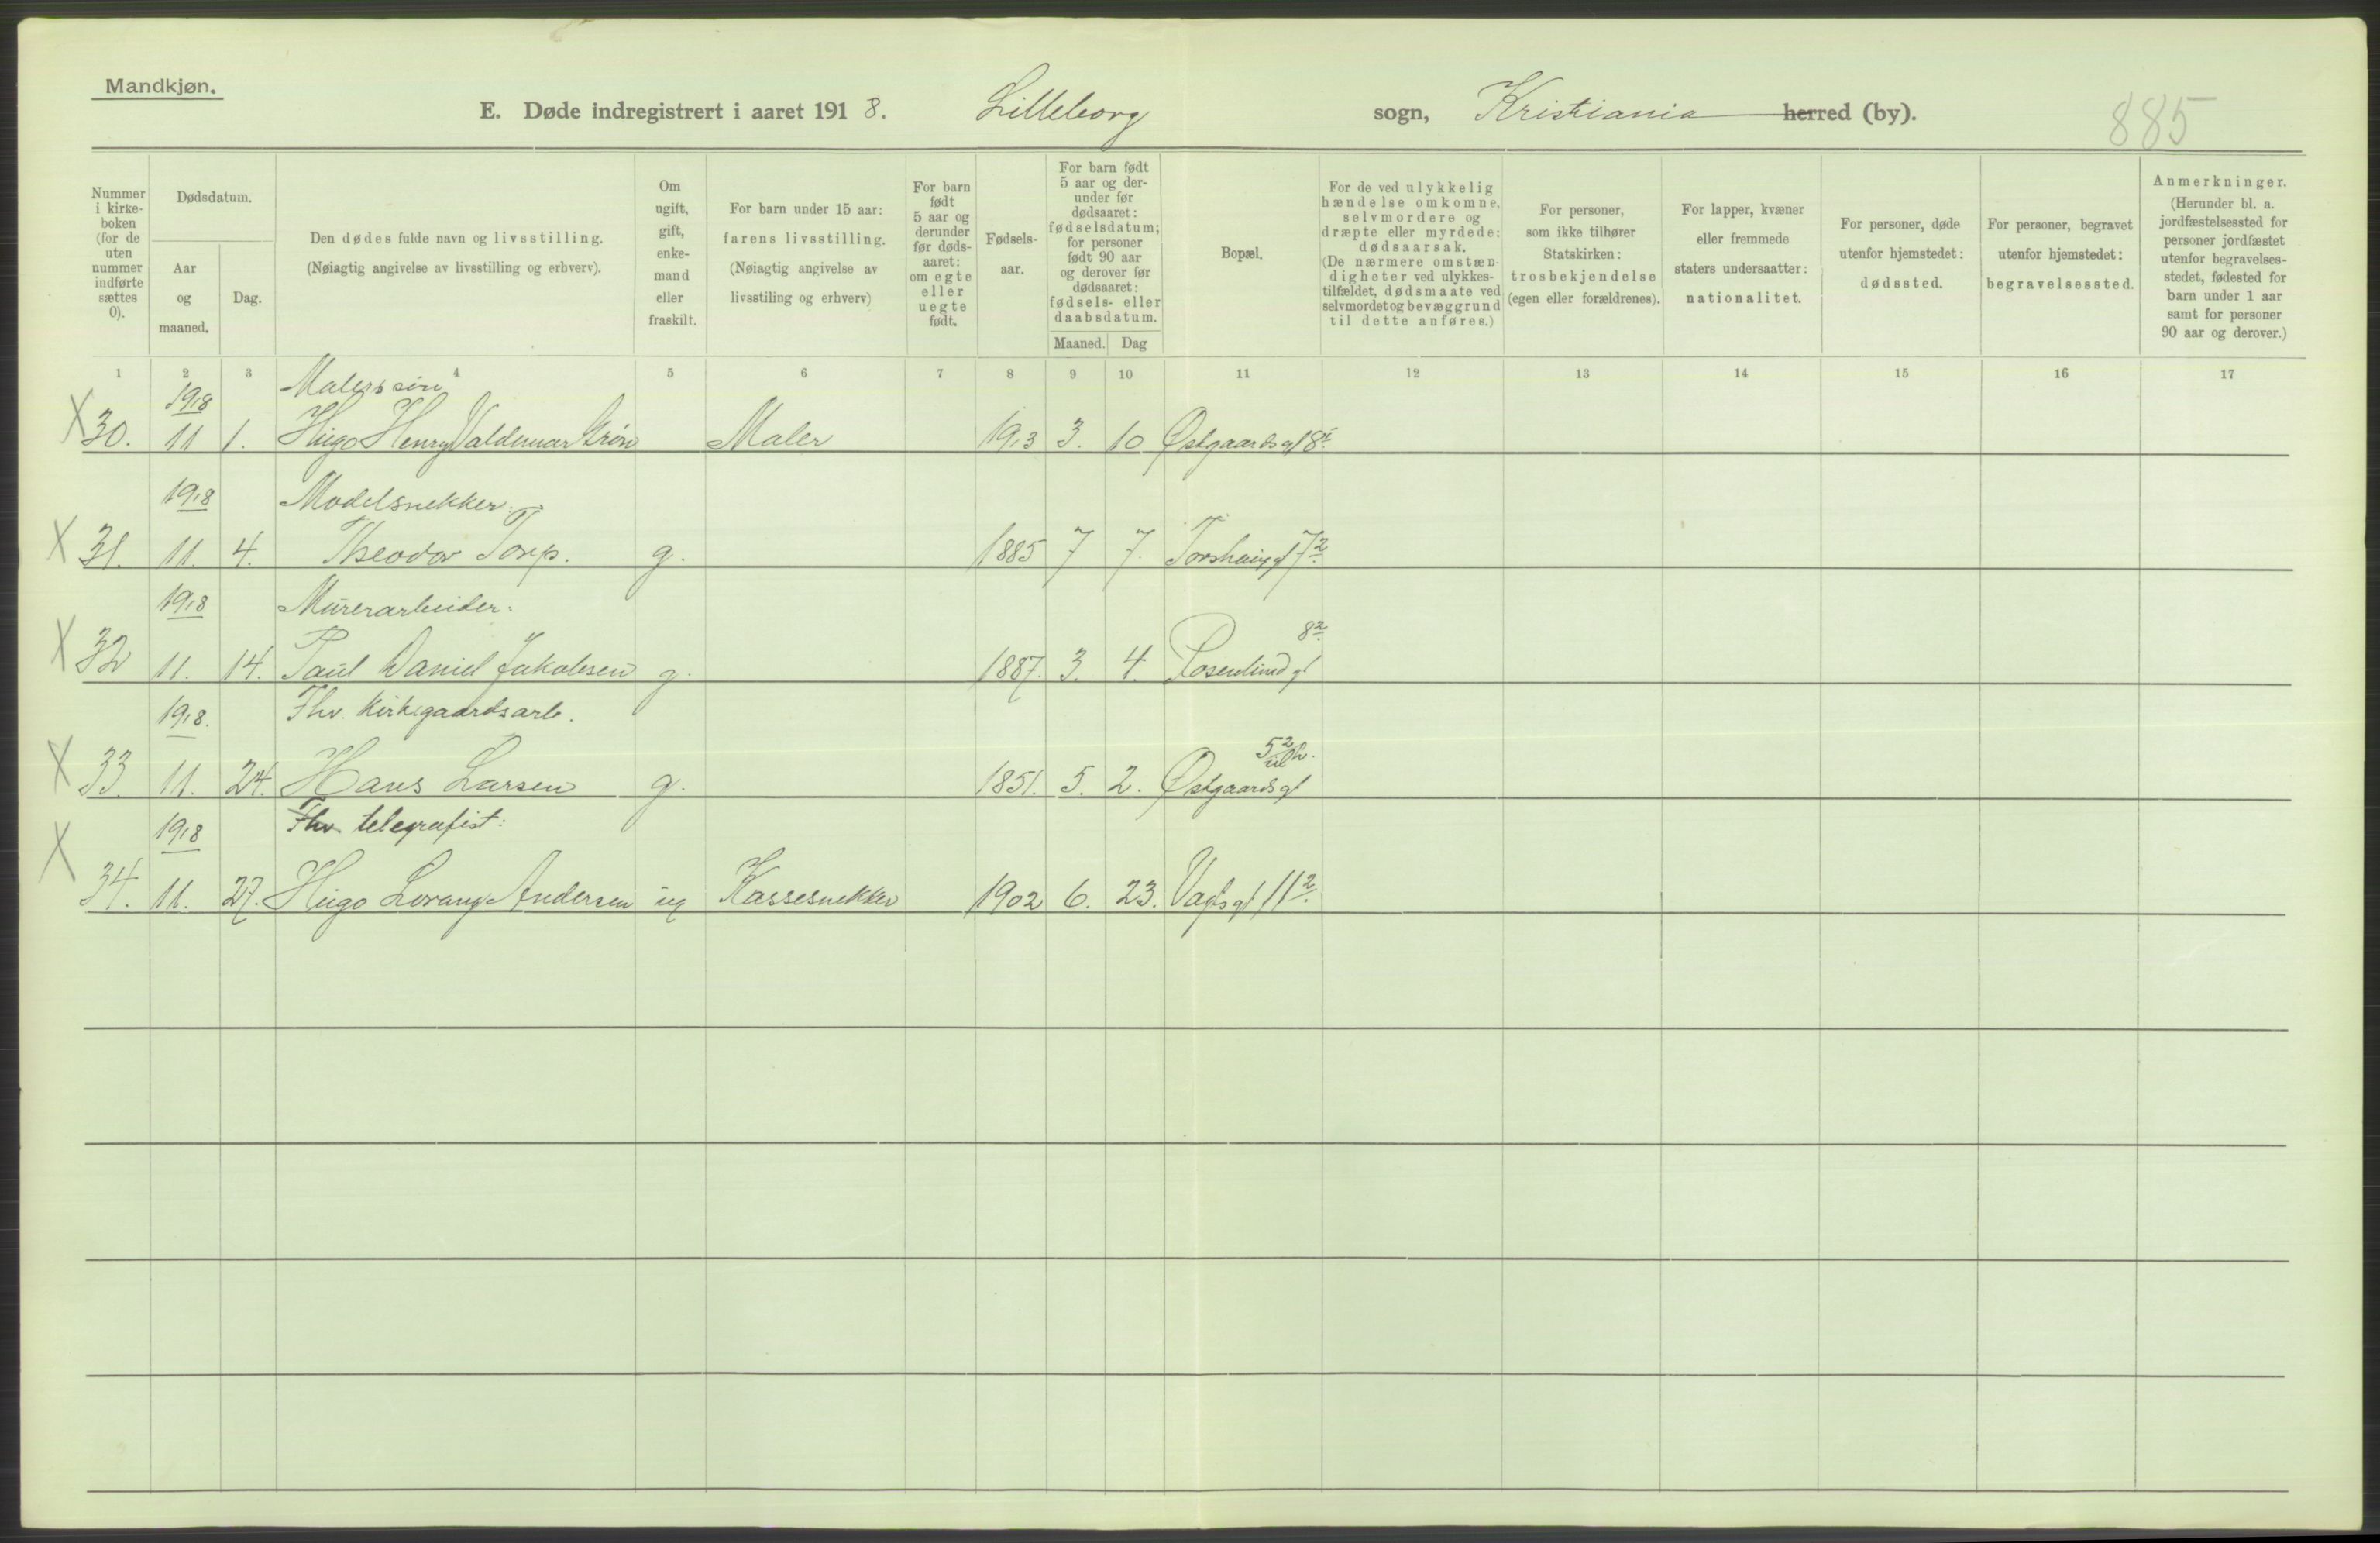 Mandkjøn.
E. Døde indregistrert i aaret 1918. Lilleborg sogn, Kristiania herred (by). 885
Nummer i kirke-boken (for de uten nummer indførte sættes 0).
Dødsdatum.
Aar og maaned.
Dag.
Den dødes fulde navn og livsstilling.
(Nøiagtig angivelse av livsstilling og erhverv).
Om ugift, gift, enke-mand eller fraskilt.
For barn under 15 aar: farens livsstilling. (Nøiagtig angivelse av livsstiling og erhverv)
For barn født 5 aar og derunder før døds-aaret: om egte eller uegte født.
Fødsels-aar.
For barn født 5 aar og der-under før dødsaaret: fødselsdatum; for personer født 90 aar og derover før dødsaaret: fødsels- eller daabsdatum.
Maaned. Dag
Bopæl.
For de ved ulykkelig hændelse omkomne, selvmordere og dræpte eller myrdede: dødsaarsak. (De nærmere omstæn-digheter ved ulykkes-tilfældet, dødsmaate ved selvmordet og bevæggrund til dette anføres.)
For personer, som ikke tilhører Statskirken: trosbekjendelse (egen eller forældrenes).
For lapper, kvæner eller fremmede staters undersaatter: nationalitet.
For personer, døde utenfor hjemstedet: dødssted.
For personer, begravet utenfor hjemstedet: begravelsessted.
Anmerkninger. (Herunder bl. a. jordfæstelsessted for personer jordfæstet utenfor begravelses-stedet, fødested for barn under 1 aar samt for personer 90 aar og derover.)
1 2 3 4 5 6 7 8 9 10 11 12 13 14 15 16 17
1918 Malers søn
X 30. 11 1. Hugo Henry Valdemar Grøn Maler 1913 3. 10 Østgaardsgt 8
1918 Modelsnekker:
X 31. 11. 4. Theodor Torp. g. 1885 7 7. Torshaugg 7 2
1918 Murerarbeider:
8 2
X 32 11. 14. Paul Daniel Jakobsen g. 1887. 3. 4. Rosenlund gt
1918. Fhv. Kirkegaardsarb.
5 2
X 33. 11. 24. Hans Larsen g. 1851. 5. 2. Østgaardsgt
1918 Fhv. telegrafist:
X 34. 11. 27. Hugo Lorang Andersen ug Kassesnekker 1902 6. 23. Vagtsgt 11 2